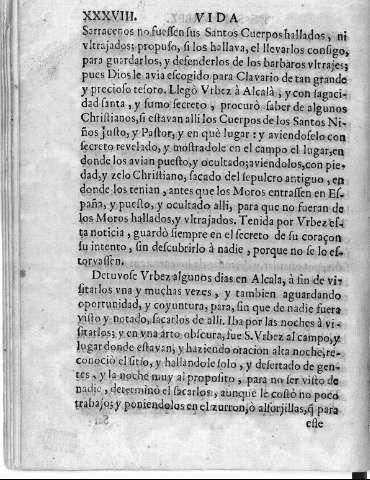 XXXVIII. VIDA
Sarracenos no fuessen sus Santos Cuerpos hallados, ni
vltrajados; propuso, si los hallava, el llevarlos consigo,
para guardarlos, y defenderlos de los barbaros vltrajes;
pues Dios le avia escogido para Clavario de tan grande
y precioso tesoro. Llegò Vrbez à Alcalà, y con sagaci-
dad santa, y sumo secreto, procurò saber de algunos
Christianos, si estavan alli los Cuerpos de los Santos Ni-
ños Justo, y Pastor, y en què lugar: y aviendoselo con
secreto revelado, y mostradole en el campo el lugar, en
donde los avian puesto, y ocultado; aviendolos, con pie-
dad, y zelo Christiano, sacado del sepulcro antiguo, en
donde los tenian, antes que los Moros entrassen en Es-
paña, y puesto, y ocultado alli, para que no fueran de
los Moros hallados, y vltrajados. Tenida por Vrbez es-
ta noticia, guardò siempre en el secreto de su coraçon
su intento, sin descubrirlo à nadie, porque no se lo es-
torvassen.
Detuvose Vrbez algunos dias en Alcala, à fin de vi-
sitarlos vna y muchas vezes, y tambien aguardando
oportunidad, y coyuntura, para, sin que de nadie fuera
visto y notado, sacarlos de alli. Iba por las noches à vi-
sitarlos; y en vna arto obscura, fue S. Vrbez al campo, y
lugar donde estavan, y haziendo oracion alta noche, re-
conociò el sitio, y hallandole solo, y desertado de gen-
tes, y la noche muy al proposito, para no ser visto de
nadie, determinò el sacarlos, aunque le costò no poco
trabajo; y poniendolos en el zurron, ò alforjillas, q̃ para
este